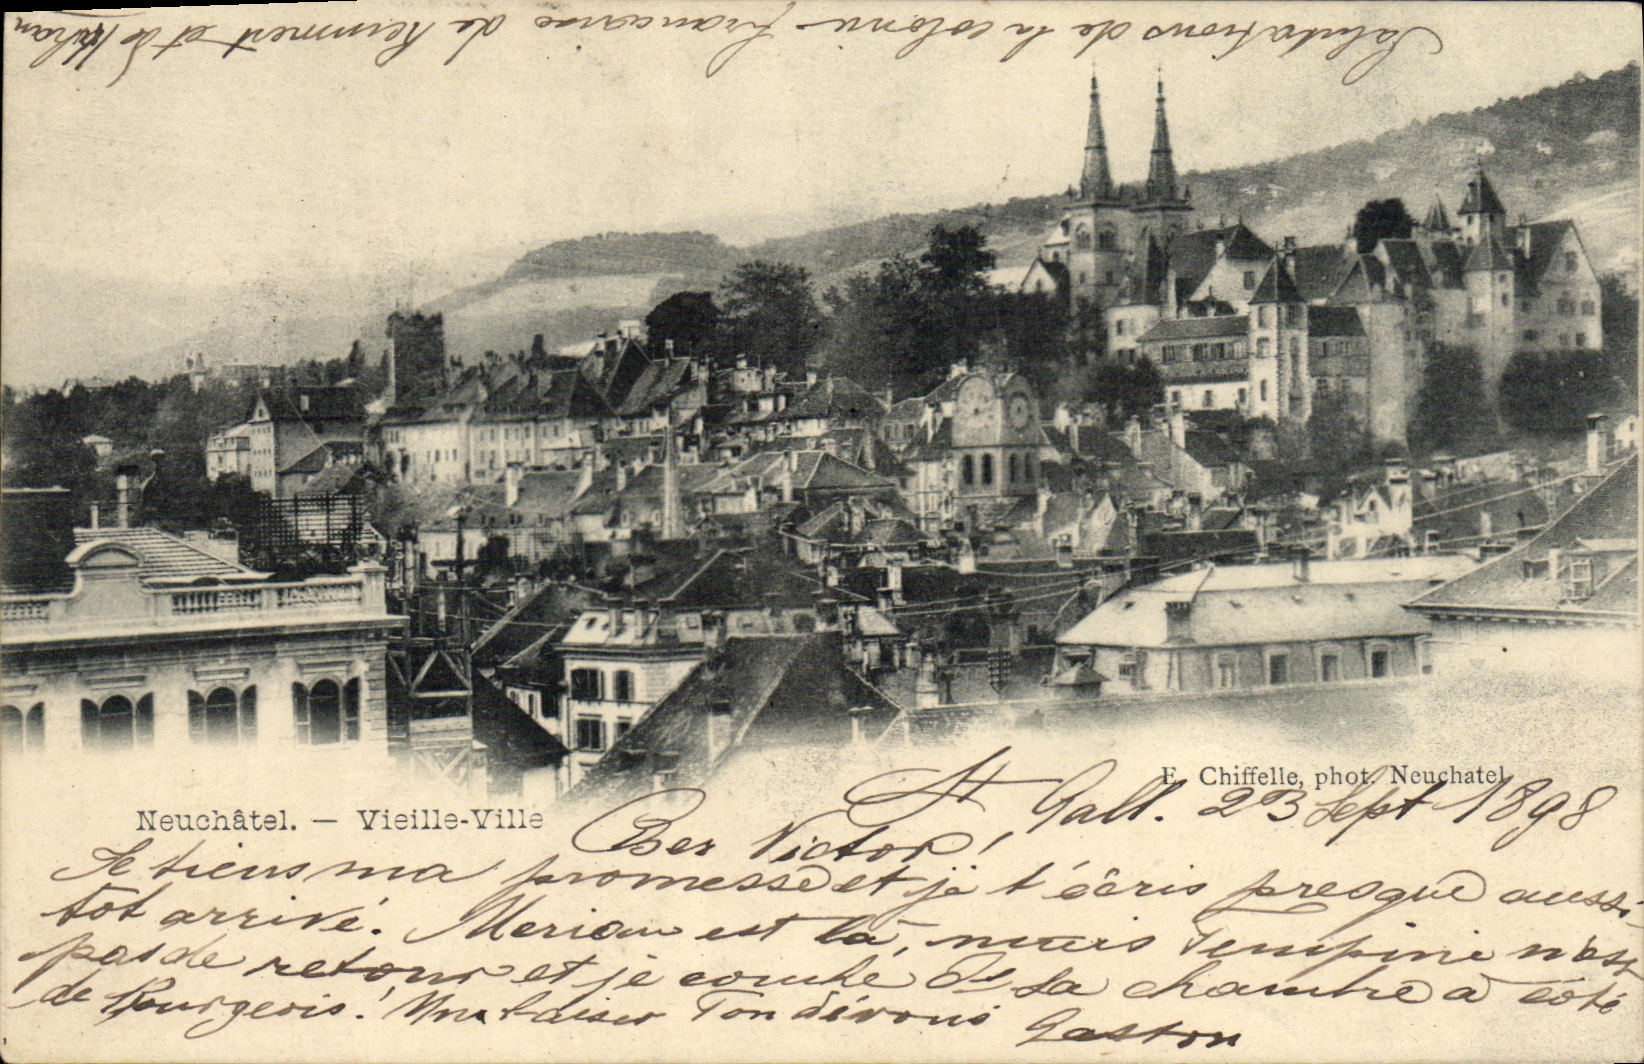 Salutations de la colonie française de Remmert et de
E. Chiffelle, phot. Neuchatel
Neuchâtel. — Vieille-Ville
St Gall. 23 Sept 1898
Cher Victor!
Je tiens ma promesse et je t'écris presque aussi-
tôt arrivé. Merian est là, mais n'est
pas de retour et je couche ds sa chambre à côté
de Bourgeois! Un baiser Ton dévoué Gaston